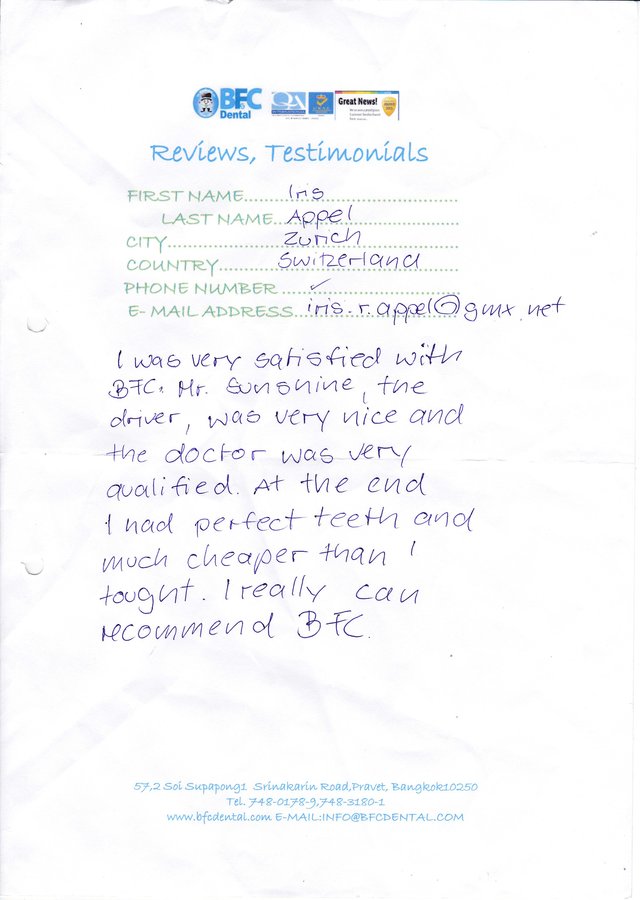 BFC
Dental
QA
Great News!
Reviews, Testimonials
FIRST NAME.......... Iris
LAST NAME... Appel
CITY.................. Zurich
COUNTRY............ Switzerland
PHONE NUMBER ..... ✓
E-MAIL ADDRESS... iris.r.appel@gmx.net
I was very satisfied with
BFC. Mr. Sunshine, the
driver, was very nice and
the doctor was very
qualified. At the end
I had perfect teeth and
much cheaper than I
tought. I really can
recommend BFC.
57,2 Soi Supapong1 Srinakarin Road,Pravet, Bangkok10250
Tel. 748-0178-9,748-3180-1
www.bfcdental.com E-MAIL:INFO@BFCDENTAL.COM